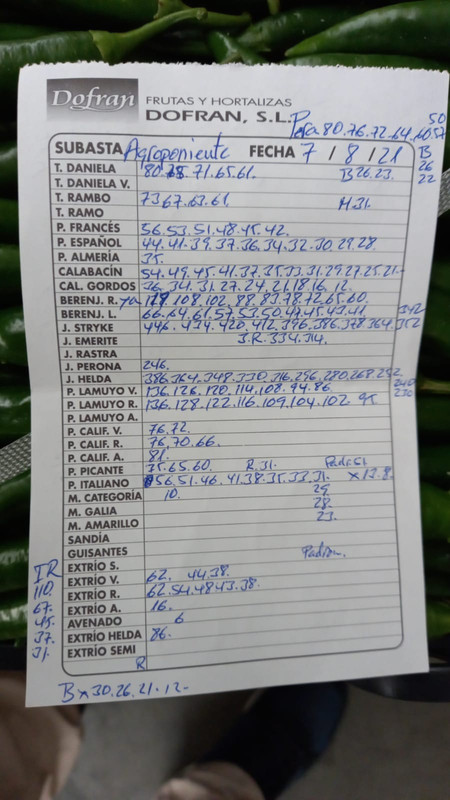 Dofran FRUTAS Y HORTALIZAS
DOFRAN, S.L.
Pera 80.76.72.64.60.57 50
SUBASTA Agroponiente FECHA 7 / 8 / 21 B
26
22
T. DANIELA 80. 71.65.61. B 26.23.
T. DANIELA V.
T. RAMBO 73 67.63.61. M.31.
T. RAMO
P. FRANCÉS 56.53.51.48.45.42.
P. ESPAÑOL 44.41.39.37.36.34.32.30.29.28.
P. ALMERÍA 35.
CALABACÍN 54.49.45.41.37.35.33.31.29.27.25.21.-
CAL. GORDOS 36.34.31.27.24.21.18.16.12.
BERENJ. R. 108.102.88.83.78.72.65.60.
BERENJ. L. 66.64.61.57.53.50.47.45.43.41. 342
J. STRYKE 446.434.420.412.396.386.378.364.352
J. EMERITE J.R. 334.314.
J. RASTRA
J. PERONA 246.
J. HELDA 386.364.348.330.316.296.280.268.252
P. LAMUYO V. 136.126.120.114.108.94.86 240
P. LAMUYO R. 136.128.122.116.109.104.102 95 230
P. LAMUYO A.
P. CALIF. V. 76.72.
P. CALIF. R. 76.70.66.
P. CALIF. A. 81.
P. PICANTE 35.65.60. R.31. Padr.51
P. ITALIANO 56.51.46.41.38.35.33.31. x 12.8.
M. CATEGORÍA 10. 29
M. GALIA 28.
M. AMARILLO 23.
SANDÍA
GUISANTES Padron.
EXTRÍO S.
EXTRÍO V. 62. 44.38.
EXTRÍO R. 62.54.48.43.38.
EXTRÍO A. 16.
AVENADO 6
EXTRÍO HELDA 86.
EXTRÍO SEMI
R
IR
110.
67.
45.
37.
31.
B x 30.26.21.12.-